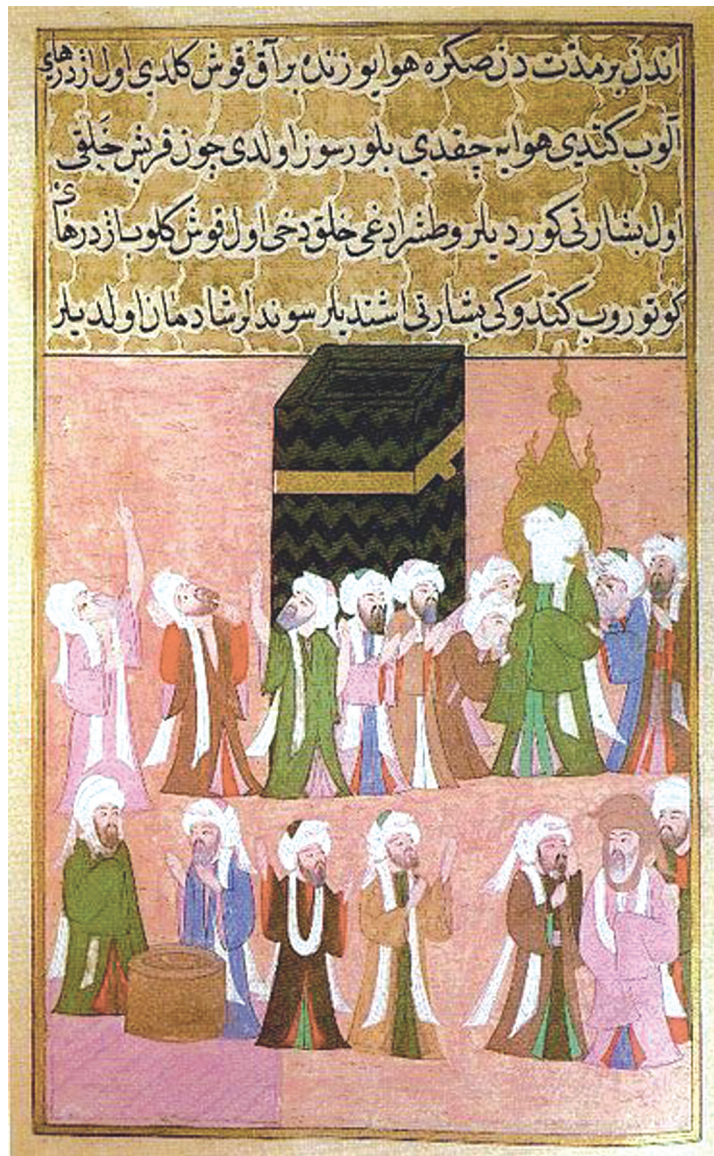 اندن بر مدّت دن صكره هوا يوزنده بر آق قوش كلدي اول اژدرهاي
آلوب كتدي هوايه چقدي بلورسوز اولدي چون قريش خَلقي
اول بشارتي كورديلر و طشرادغي خلق دخي اول قوش كلوب اژدرهاي
كوتوروب كتدوكي بشارتي اشتديلر سوندلر شادمان اولديلر